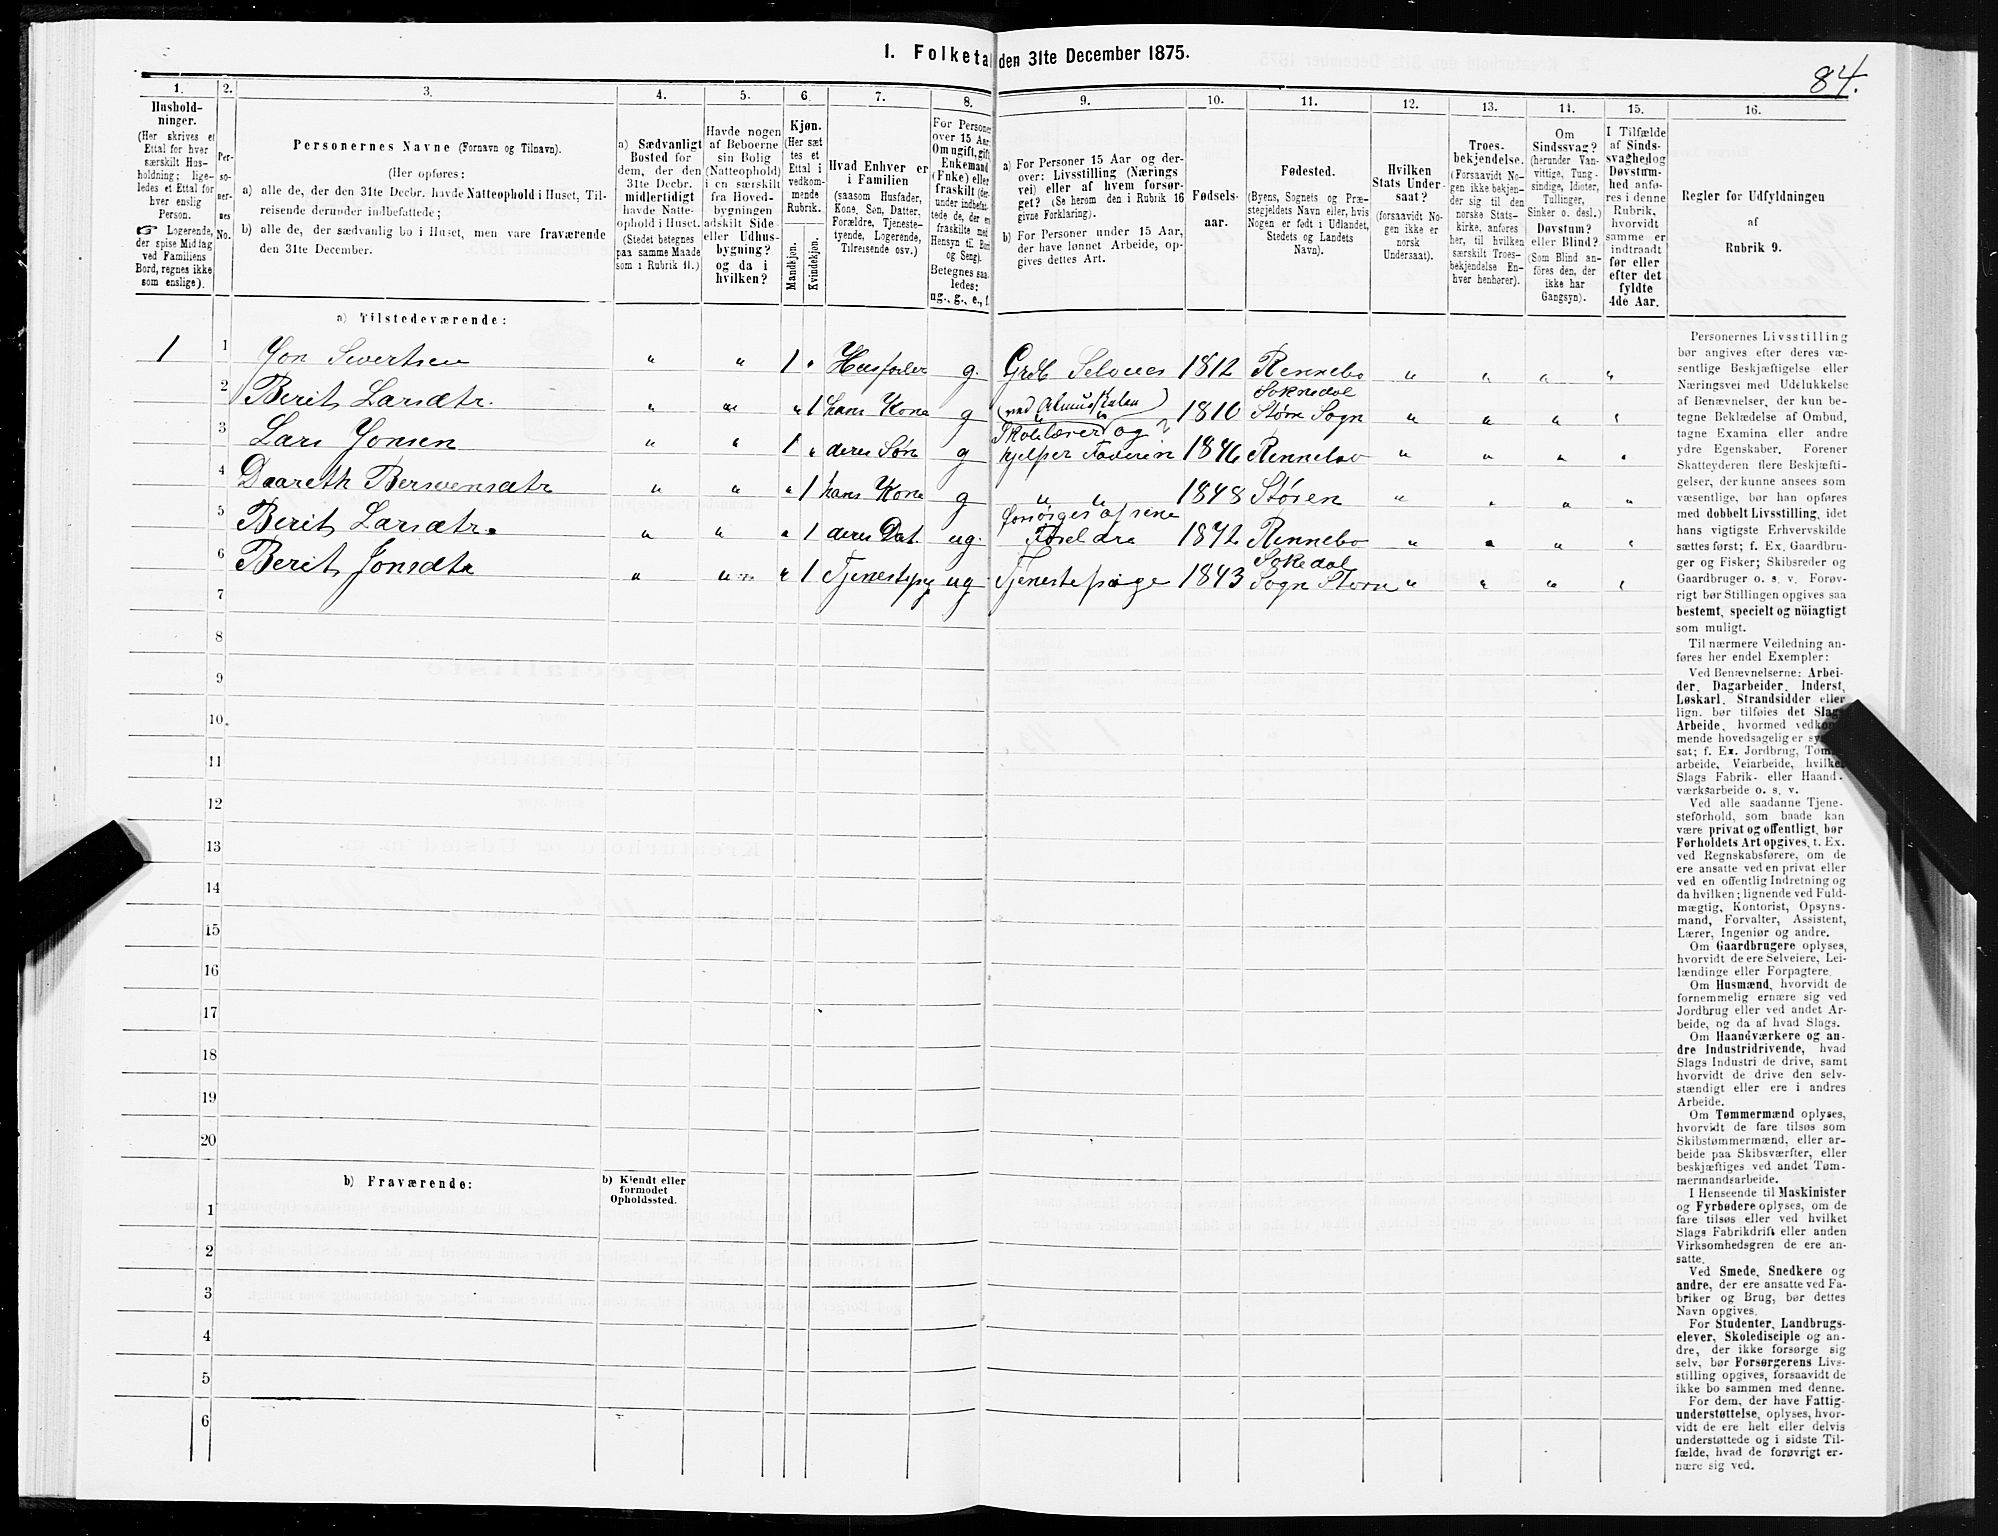 1. Folketal den 31te December 1875.
84.
1.
2.
3.
4.
5.
6.
7.
8.
9.
10.
11.
12.
13.
14.
15.
16.
Hushold-
ninger.
(Her skrives et
Ettal for hver
særskilt Hus-
holdning; lige-
ledes et Ettal for
hver enslig
Person.
☞ Logerende,
der spise Middag
ved Familiens
Bord, regnes ikke
som enslige).
Per-
so-
ner-
nes
No.
Personernes Navne (Fornavn og Tilnavn).
(Her opføres:
a) alle de, der den 31te Decbr. havde Natteophold i Huset, Til-
reisende derunder indbefattede;
b) alle de, der sædvanlig bo i Huset, men vare fraværende
den 31te December.
a) Sædvanligt
Bosted for
dem, der den
31te Decbr.
midlertidigt
havde Natte-
ophold i Huset.
(Stedet betegnes
paa samme Maade
som i Rubrik 11.)
Havde nogen
af Beboerne
sin Bolig
(Natteophold)
i en særskilt
fra Hoved-
bygningen
adskilt Side-
eller Udhus-
bygning?
og da i
hvilken?
Kjøn.
(Her sæt-
tes et
Ettal i
vedkom-
mende
Rubrik.
Mandkjøn.
Kvindekjøn.
Hvad Enhver er
i Familien
(saasom Husfader,
Kone, Søn, Datter,
Forældre, Tjeneste-
tyende, Logerende,
Tilreisende osv.)
For Personer
over 15 Aar:
Om ugift, gift,
Enkemand
(Enke) eller
fraskilt (der-
under indbefat-
tede de, der ere
fraskilte med
Hensyn til Bord
og Seng).
Betegnes saa-
ledes:
ug., g., e., f.
a) For Personer 15 Aar og der-
over: Livsstilling (Nærings-
vei) eller af hvem forsør-
get? (Se herom den i Rubrik 16
givne Forklaring).
b) For Personer under 15 Aar,
der have lønnet Arbeide, op-
gives dettes Art.
Fødsels-
aar.
Fødested.
(Byens, Sognets og Præ-
stegjeldets Navn eller, hvis
Nogen er født i Udlandet,
Stedets og Landets
Navn).
Hvilken
Stats Under-
saat?
(forsaavidt No-
gen ikke er
norsk
Undersaat).
Troes-
bekjendelse.
(Forsaavidt No-
gen ikke bekjen-
der sig til den
norske Stats-
kirke, anføres
her, til hvilken
særskilt Troes-
bekjendelse En-
hver henhører).
Om
Sindssvag?
(herunder Van-
vittige, Tung-
sindige, Idioter,
Tullinger,
Sinker o. desl.)
Døvstum?
eller Blind?
(Som Blind an-
føres den, der
ikke har
Gangsyn).
I Tilfælde
af Sinds-
svaghed og
Døvstum-
hed anfø-
res i denne
Rubrik,
hvorvidt
samme er
indtraadt
før eller
efter det
fyldte
4de Aar.
Regler for Udfyldningen
af
Rubrik 9.
a) Tilstedeværende:
1 1 Jon Sivertsen " " 1 " Husfader g. Grdb. Selveier 1812 Rennebo " " " "
(ved Almuskolen) Soknedal
2 Berit Larsdtr. " " " 1 hans Kone g " " 1810 Støren Sogn " " " "
Skolelærer og
3 Lars Jonsen " " 1 " deres Søn g hjelper Faderen 1846 Rennebo " " " "
4 Daareth Bersvensdtr " " " 1 hans Kone g " " 1848 Støren " " " "
forsørges af sine
5 Berit Larsdtr. " " " 1 deres Dat. ug. Foreldre 1872 Rennebo " " " "
Sokedal
6 Berit Jonsdtr " " " 1 Tjenestepig ug Tjenestepige 1843 Sogn Støren " " " "
7
8
9
10
11
12
13
14
15
16
17
18
19
20
b) Fraværende:
b) Kjendt eller
formodet
Opholdssted.
1
2
3
4
5
6
Personernes Livsstilling
bør angives efter deres væ-
sentlige Beskjæftigelse eller
Næringsvei med Udelukkelse
af Benævnelser, der kun be-
tegne Beklædelse af Ombud,
tagne Examina eller andre
ydre Egenskaber. Forener
Skatteyderen flere Beskjæfti-
gelser, der kunne ansees som
væsentlige, bør han opføres
med dobbelt Livsstilling, idet
hans vigtigste Erhvervskilde
sættes først; f. Ex. Gaardbru-
ger og Fisker; Skibsreder og
Gaardbruger o. s. v. Forøv-
rigt bør Stillingen opgives saa
bestemt, specielt og nöiagtigt
som muligt.
Til nærmere Veiledning an-
føres her endel Exempler:
Ved Benævnelserne: Arbei-
der, Dagarbeider, Inderst,
Løskarl, Strandsidder eller
lign. bør tilføies det Slags
Arbeide, hvormed vedkom-
mende hovedsagelig er syssel-
sat; f. Ex. Jordbrug, Tømmer-
arbeide, Veiarbeide, hvilket
Slags Fabrik- eller Haand-
værksarbeide o. s. v.
Ved alle saadanne Tjene-
steforhold, som baade kan
være privat og offentligt, bør
Forholdets Art opgives, t. Ex.
ved Regnskabsførere, om de
ere ansatte ved en privat eller
ved en offentlig Indretning og
da hvilken; lignende ved Fuld-
mægtig, Kontorist, Opsyns-
mand, Forvalter, Assistent,
Lærer, Ingeniør og andre.
Om Gaardbrugere oplyses,
hvorvidt de ere Selveiere, Lei-
lændinge eller Forpagtere.
Om Husmænd, hvorvidt de
fornemmelig ernære sig ved
Jordbrug eller ved andet Ar-
beide, og da af hvad Slags.
Om Haandværkere og an-
dre Industridrivende, hvad
Slags Industri de drive, samt
hvorvidt de drive den selv-
stændigt eller ere i andres
Arbeide.
Om Tømmermænd oplyses,
hvorvidt de fare tilsøs som
Skibstømmermænd, eller ar-
beide paa Skibsværfter, eller
beskjæftiges ved andet Tøm-
mermandsarbeide.
I Henseende til Maskinister
og Fyrbødere oplyses, om de
fare tilsøs eller ved hvilket
Slags Fabrikdrift eller anden
Virksomhedsgren de ere an-
satte.
Ved Smede, Snedkere og
andre, der ere ansatte ved Fa-
briker og Brug, bør dettes
Navn opgives.
For Studenter, Landbrugs-
elever, Skoledisciple og an-
dre, der ikke forsørge sig
selv, bør Forsørgerens Livs-
stilling opgives, forsaavidt de
ikke bo sammen med denne.
For dem, der have Fattig-
understøttelse, oplyses, hvor-
vidt de ere helt eller delvis
understøttede og i sidste Til-
fælde, hvad de forøvrigt er-
nære sig ved.